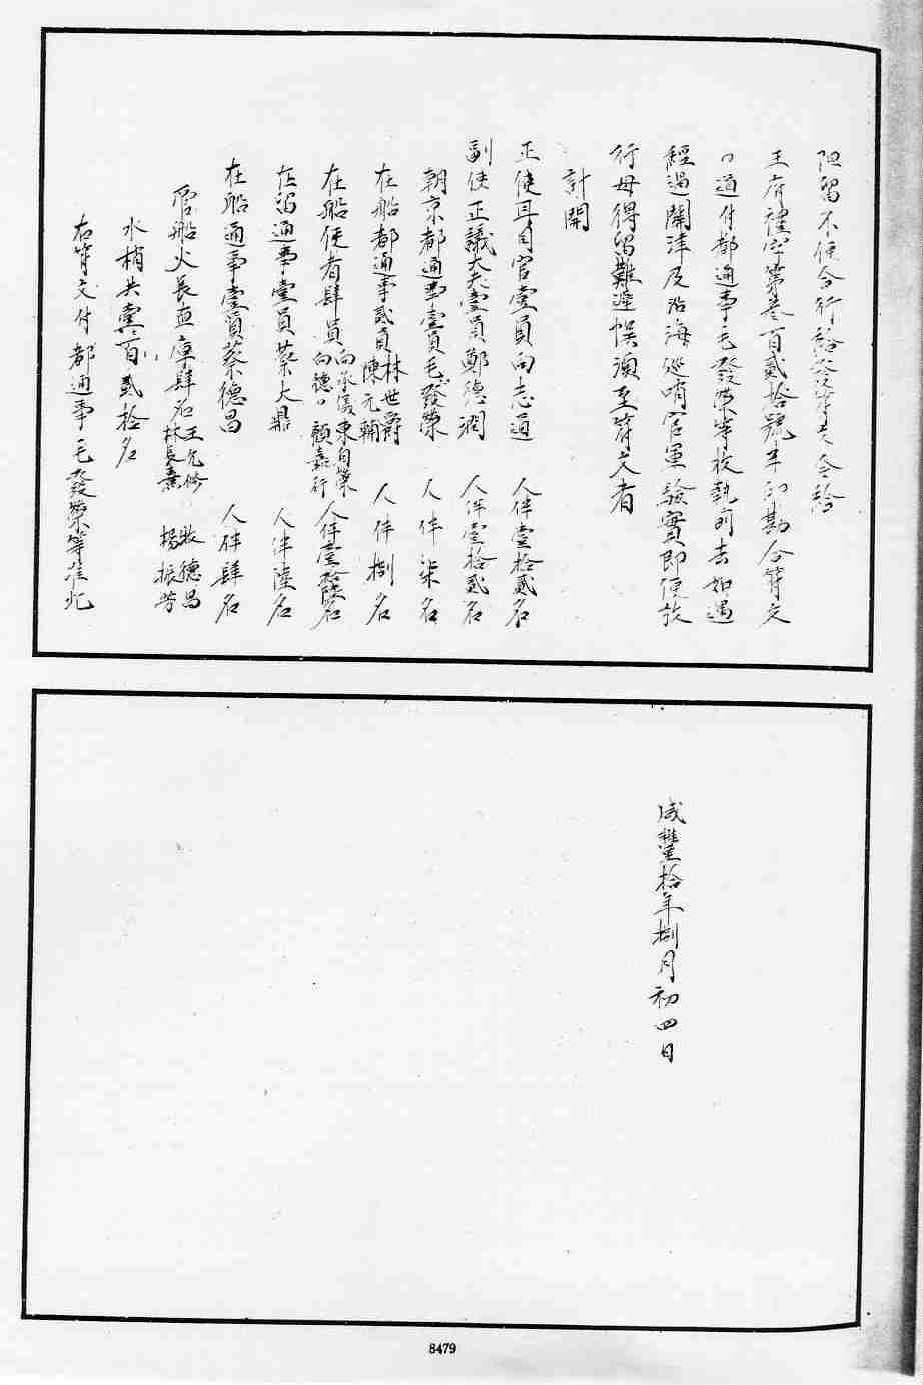 阻留不便合行給發符文今給
王府禮字第叁百貳拾號半印勘合符文
〃道付都通事毛發榮等收執前去如遇
經過關津及沿海巡哨官軍驗實即便放
行毋得留難遲悞須至符文者
計開
正使耳目官壹員向志道 人伴壹拾貳名
副使正議大夫壹員鄭德潤 人伴壹拾貳名
朝京都通事壹員毛發榮 人伴柒名
在船都通事貳員林世爵 陳元輔 人伴捌名
在船使者肆員向承儀 東自榮 向德〃 顧嘉行 人伴壹拾陸名
在留通事壹員蔡大鼎 人伴陸名
在船通事壹員蔡德昌 人伴肆名
管船火長直庫肆名王允修 林長熹 德昌 楊振芳
水梢共壹百貳拾名
右符文付都通事毛發榮等准此
咸豐拾年捌月初四日
8479